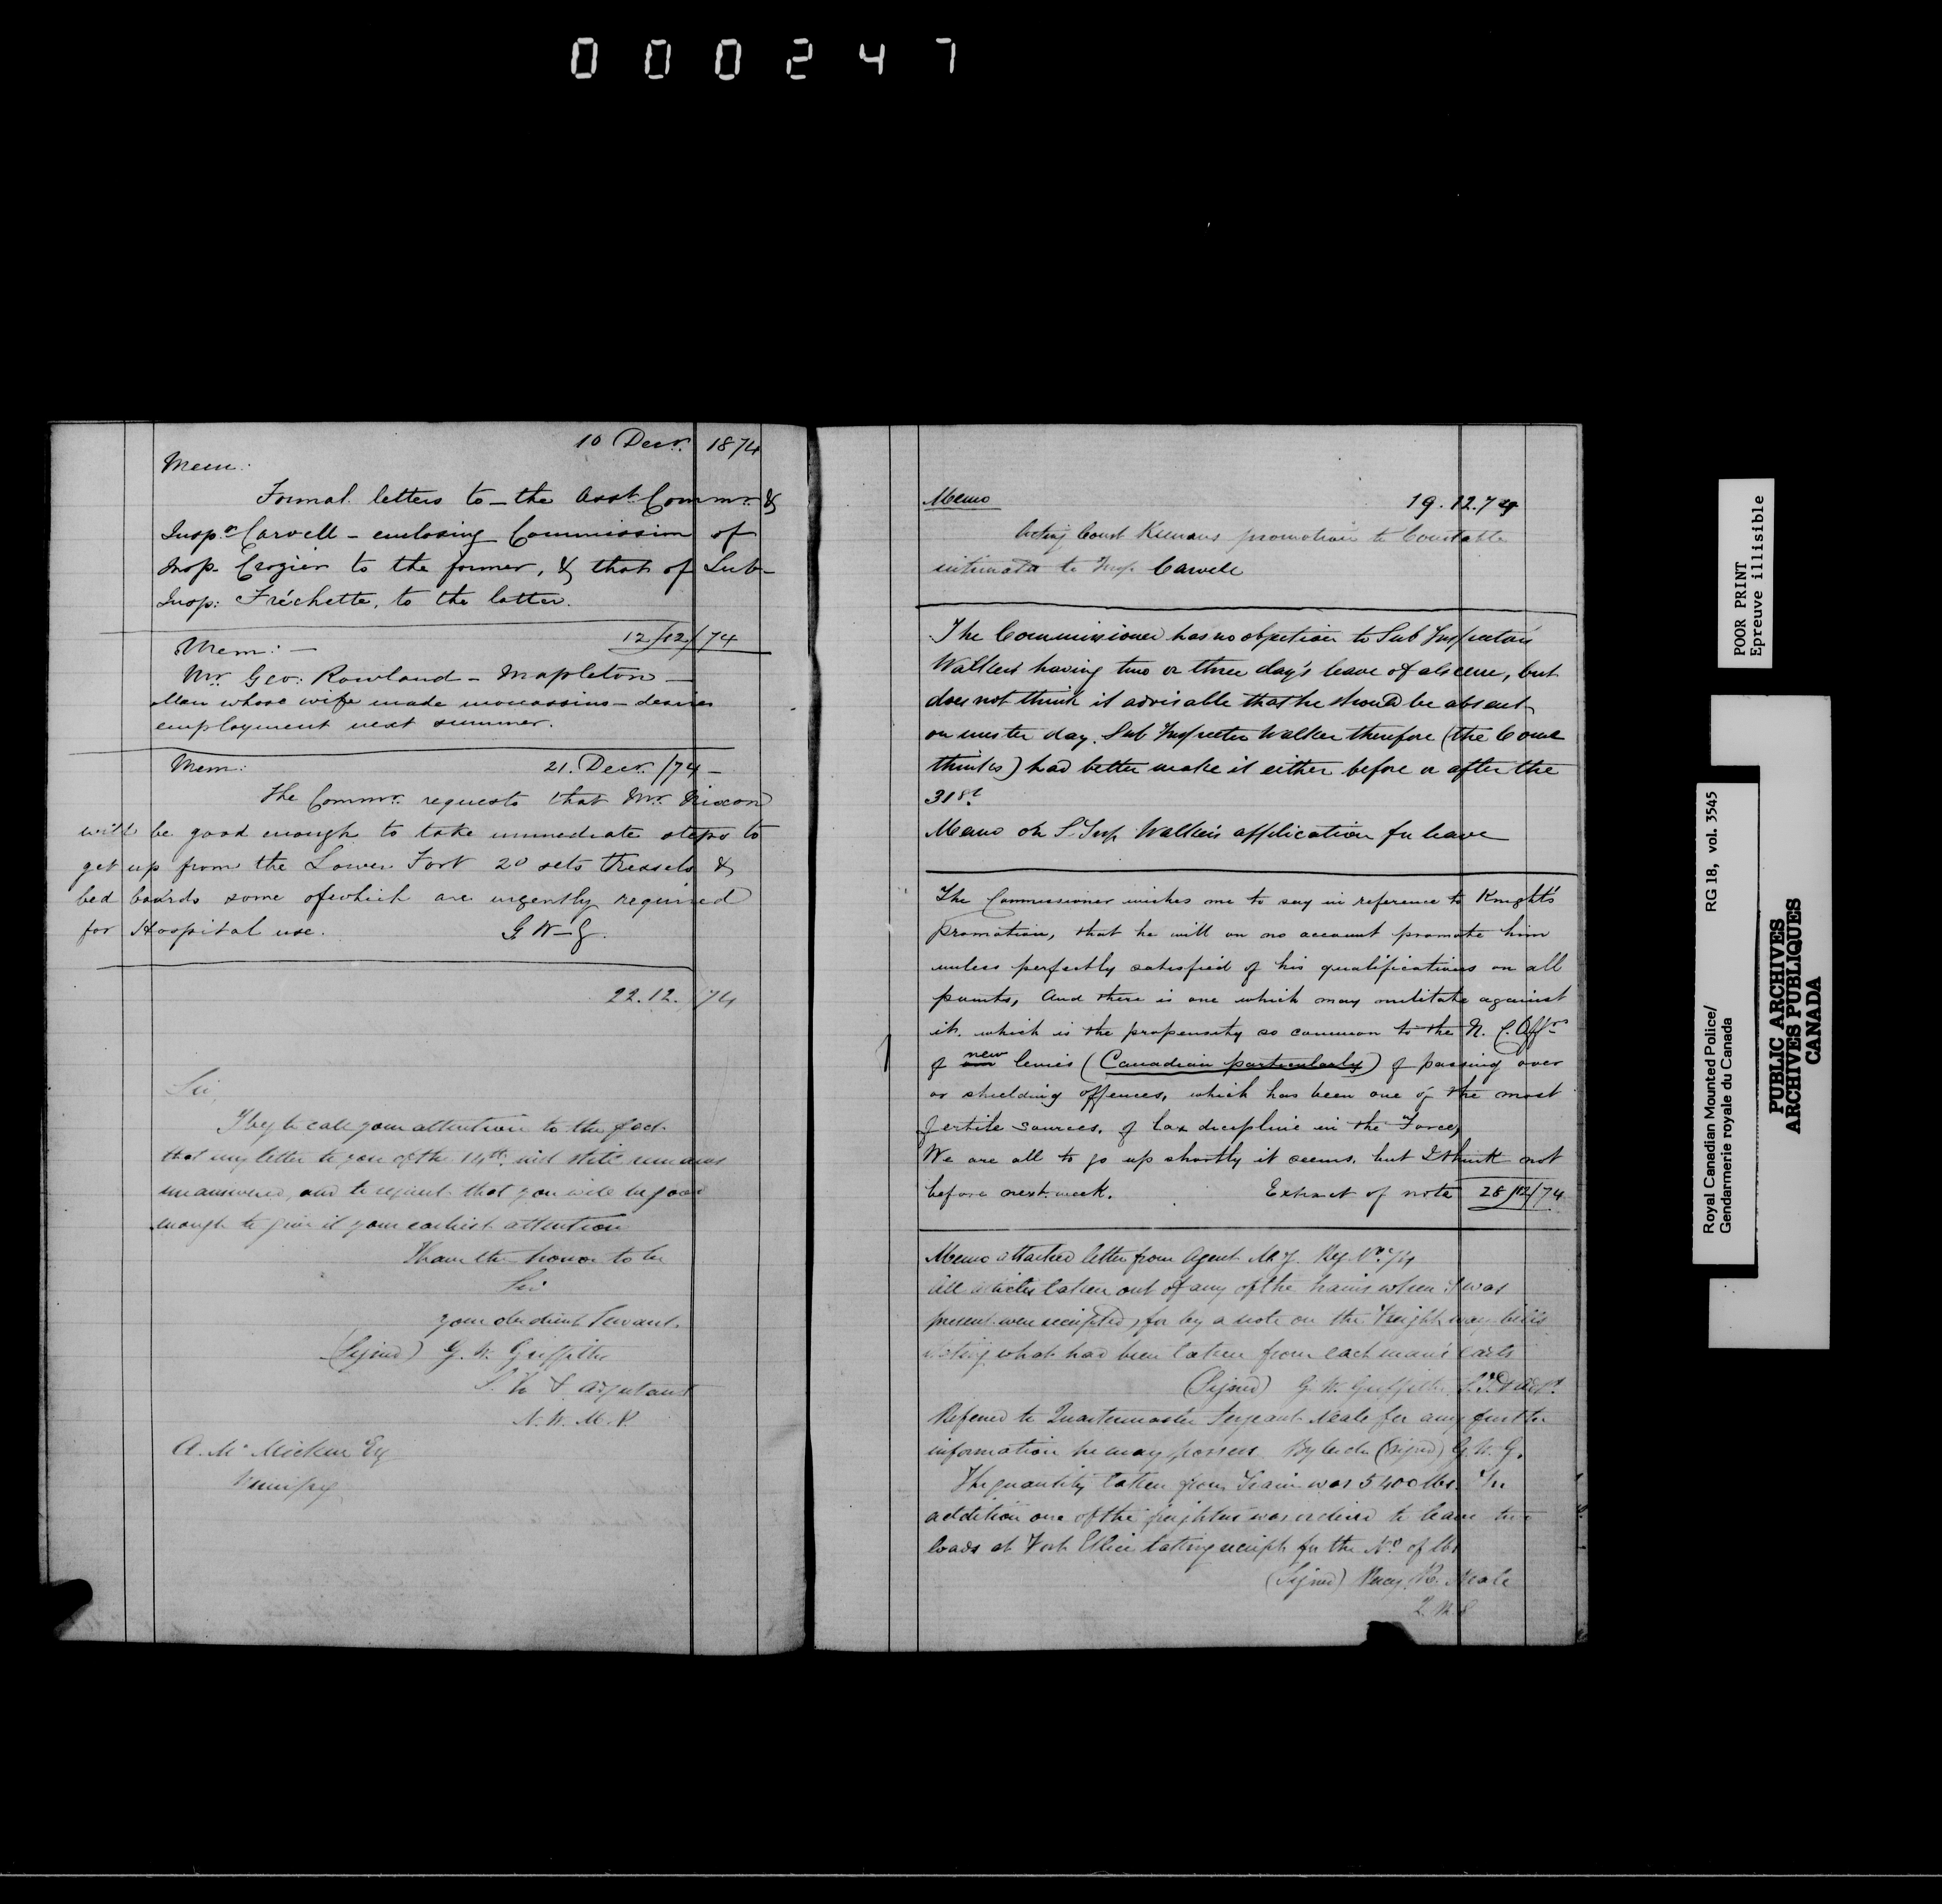 000247
10 Decr. 1874
Mem:
Formal letters to the Asst. Commr. &
Inspr. Carvell - enclosing Commission of
Insp. Crozier to the former, & that of Sub-
Insp: Fréchette, to the latter.
12/12/74
Mem: -
Mr. Geo: Rowland - Mapleton -
Man whose wife made moccassins - desires
employment next summer.
Mem: 21. Decr. /74 -
The Commr. requests that Mr. Nixon
will be good enough to take immediate steps to
get up from the Lower Fort 20 sets tressels &
bed boards some of which are urgently required
for Hospital use. G W - G.
22.12.74
Sir,
I beg to call your attention to the fact
that my letter to you of the 14th. inst still remains
unanswered, and to request that you will be good
enough to give it your earliest attention
I have the honor to be
Sir
your obedient Servant.
(Signed) G. W. Griffiths
S. I. & Adjutant
N. W. M. P.
A. McMicken Esq
Winnipeg
Memo 19.12.74
Acting Const promotion to Constable
intimated to Insp. Carvell
The Commissioner has no objection to Sub Inspector
Walker having two or three day's leave of absence, but
does not think it advisable that he should be absent
on muster day. Sub Inspector Walker therefore (the Comr
thinks) had better make it either before or after the
31st.
Memo on S. Insp Walker's application for leave
The Commissioner wishes me to say in reference to Knight's
promotion, that he will on no account promote him
unless perfectly satisfied of his qualifications on all
points, And there is one which may militate against
it. which is the propensity so common to the N. C. Offrs
of new levies (Canadian particularly) of passing over
or shielding offences, which has been one of the most
fertile sources, of lax discipline in the Force,
We are all to go up shortly it seems. but I think not
before next week. Extract of note 28/12/74
Memo attached letter from Agent
All articles taken out of any of the trains when I was
present were receipted for by a note on the Freight way bills
stating what had been taken from each man's carts
(Signed) G. W. Griffiths S.I. & Adjt.
Referred to Quartermaster Sergeant Neale for any further
information he may possess By order (signed) G. W. G.
The quantity taken from Train was 5400 lbs. In
addition one of the freighters was ordered to leave two
loads at Fort Ellice taking receipt for the No. of lbs
(Signed) Percy R. Neale
Q. M. S
POOR PRINT
Epreuve illisible
Royal Canadian Mounted Police/ RG 18, vol. 3545
Gendarmerie royale du Canada
PUBLIC ARCHIVES
ARCHIVES PUBLIQUES
CANADA